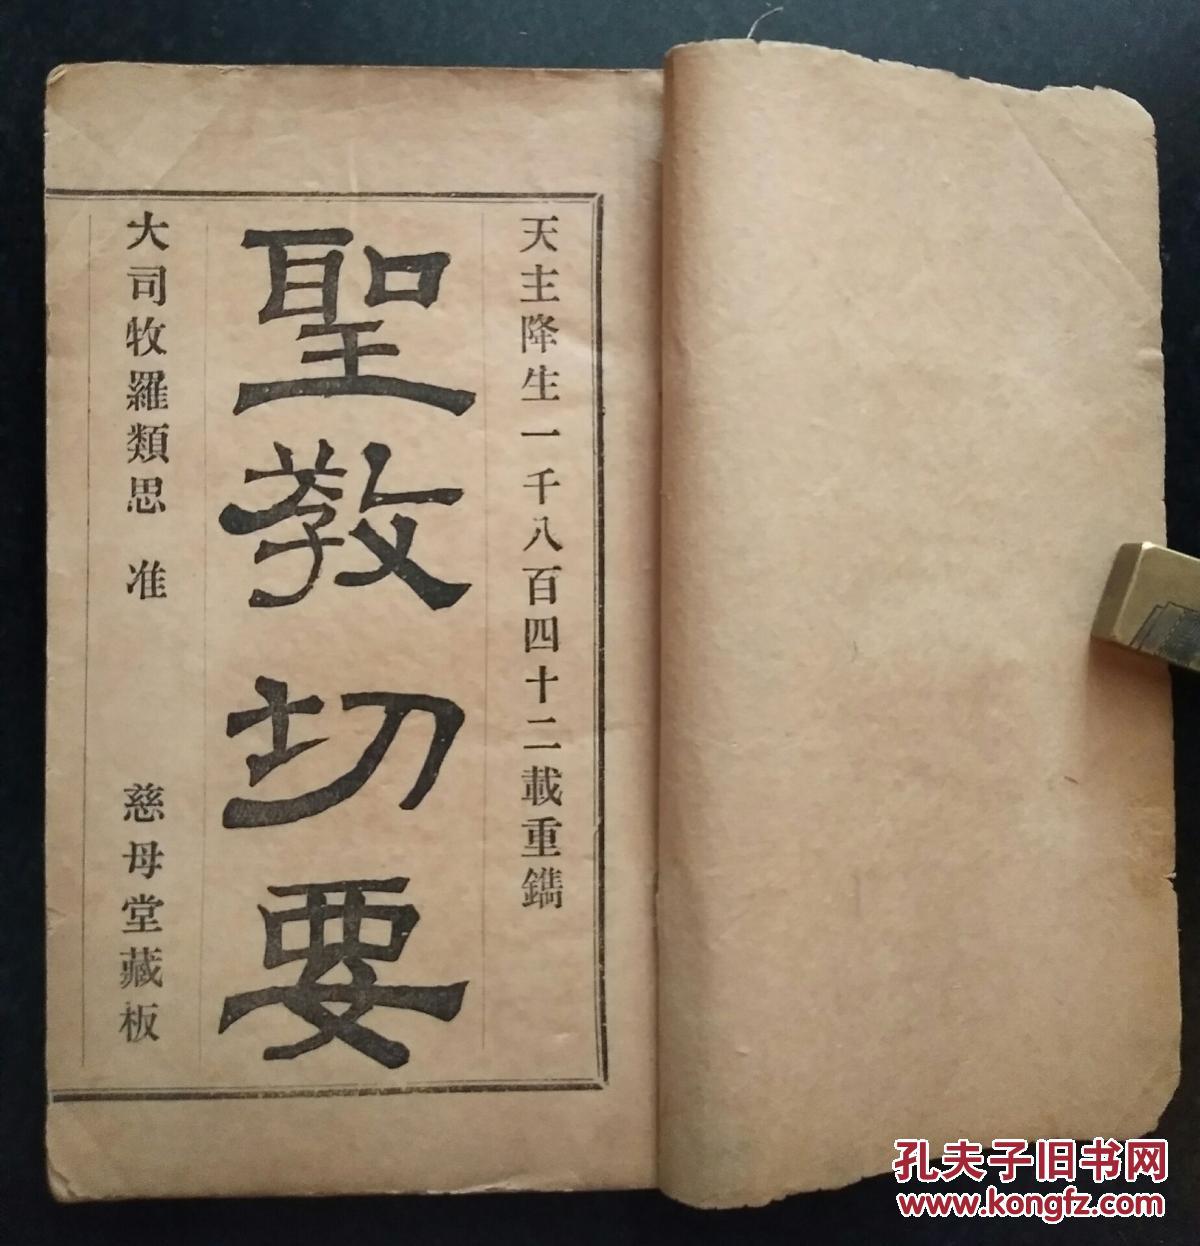 天主降生一千八百四十二載重鐫
聖教切要
大司牧羅類思 准 慈母堂藏板
孔夫子旧书网
www.kongfz.com